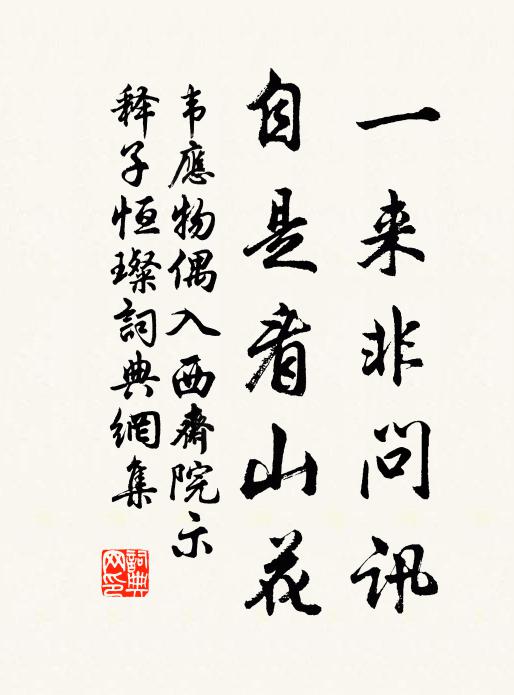 一来非问讯
自是看山花
韦應物偶入西齋院示
释子恒璨詞典網集
詞典
网印